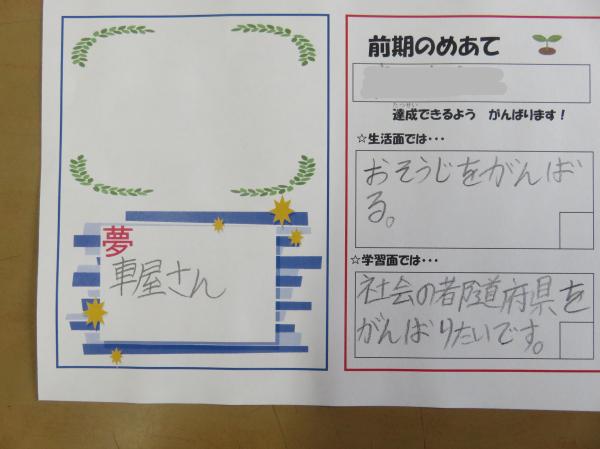 夢
車屋さん
前期のめあて
たっせい
達成できるよう がんばります！
☆生活面では・・・
おそうじをがんば
る。
☆学習面では・・・
社会の都道府県を
がんばりたいです。